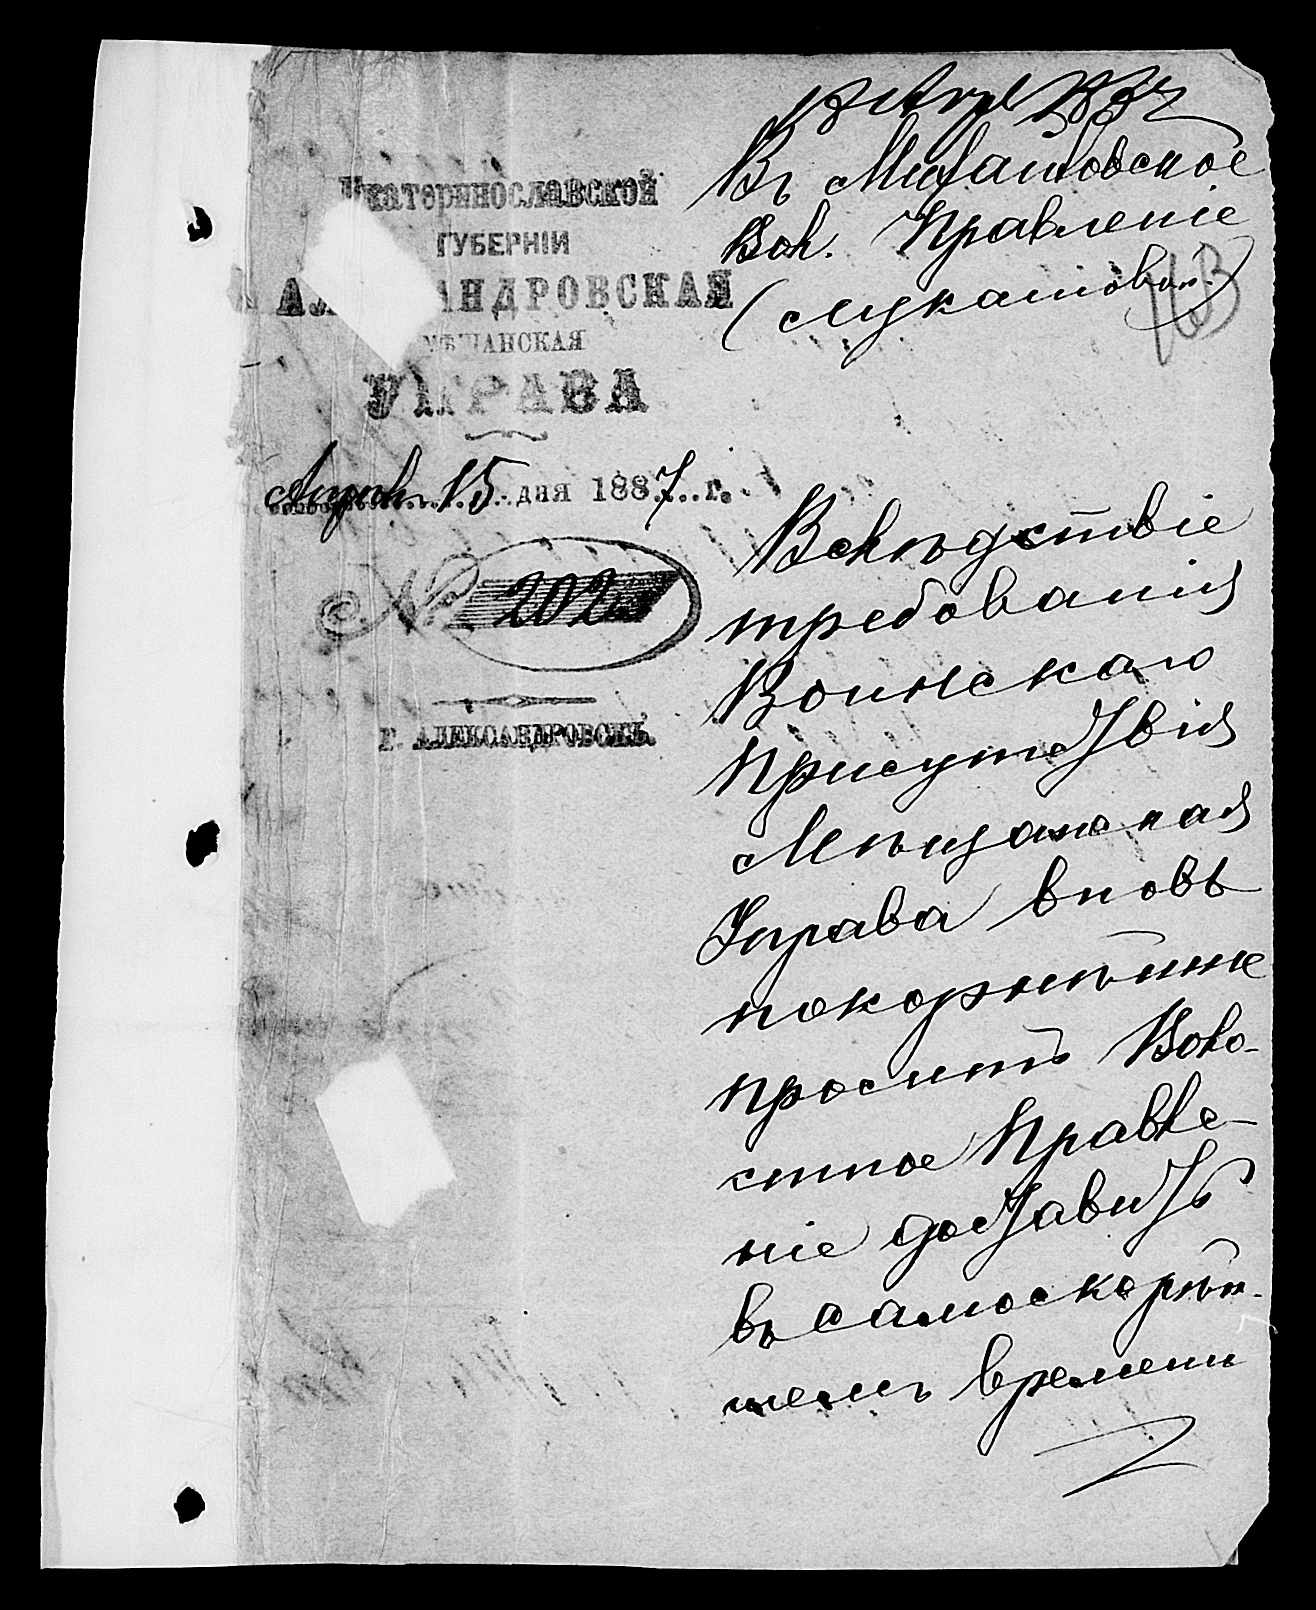 Екатеринославской
ГУБЕРНІИ
АЛ АНДРОВСКАЯ
МѢЩАНСКАЯ
УПРАВА
Апрѣля 15 дня 1887 г.
№ 202
г. АЛЕКСАНДРОВСКЪ.
Въ
Вол. Правленіе
163
Вслѣдствіе
требованія
Воинскаго
Присутствія
Мѣщанская
Управа вновь
покорнѣйше
проситъ Воло-
стное Правле-
ніе доставить
въ самоскорѣй-
шемъ времени